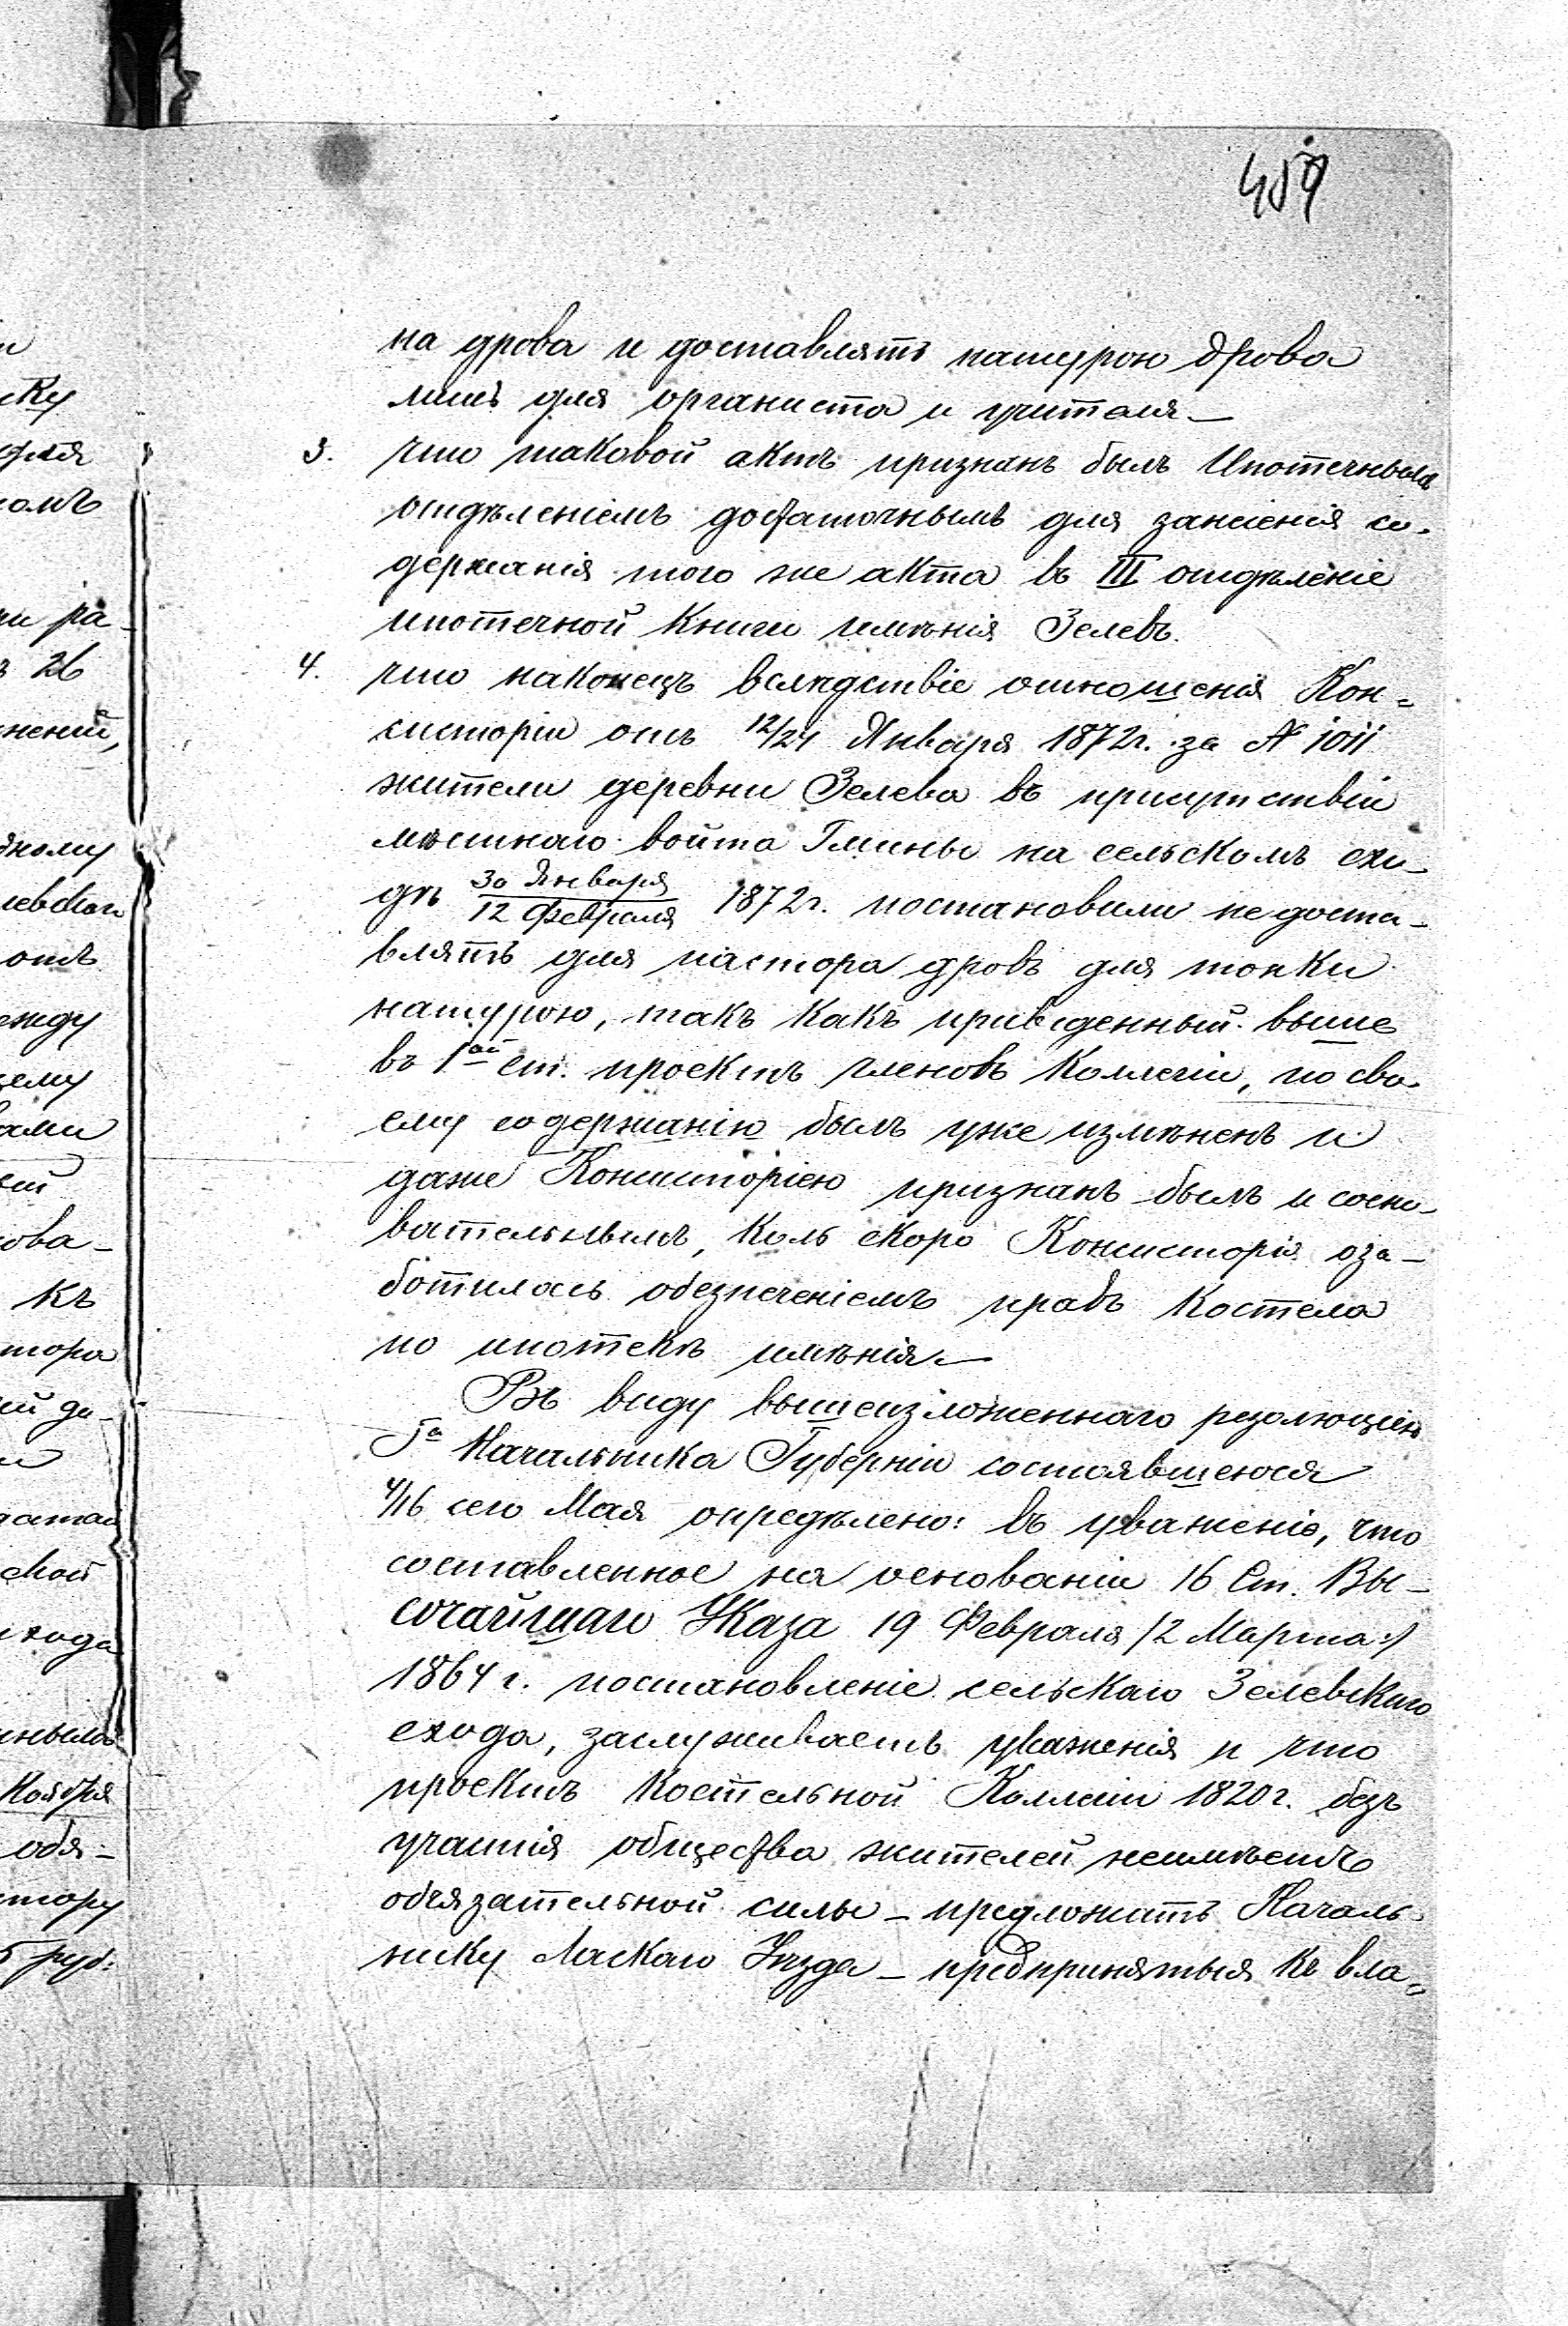 459
на дрова и доставлять натурою дрова
лишь для органиста и учителя —
3. что таковой актъ признанъ былъ Ипотечнымъ
отдѣленіемъ достаточнымъ для занесенія со-
держанія того же акта въ III отдѣленіе
ипотечной книги имѣнія Зелевъ.
4. что наконецъ вслѣдствіе отношенія Кон-
систоріи отъ 12/24 Января 1872 г. за № 1011
жители деревни Зелева въ присутствіи
мѣстнаго войта Гмины на сельскомъ схо-
дѣ 30 Января / 12 Февраля 1872 г. постановили не доста-
влять для пастора дровъ для топки
натурою, такъ какъ приведенный выше
въ 1ой ст. проектъ членовъ Коллегіи, по сво-
ему содержанію былъ уже измѣненъ и
даже Консисторіею признанъ былъ несосно-
вательнымъ, коль скоро Консисторія оза-
ботилась обезпеченіемъ правъ Костела
по ипотекѣ имѣнія —
Въ виду вышеизложеннаго резолюціею
Га Начальника Губерніи состоявшеюся
4/16 сего Мая опредѣлено: въ уваженіе, что
составленное на основаніи 16 Ст. Вы-
сочайшаго Указа 19 Февраля /2 Марта:/
1864 г. постановленіе сельскаго Зелевскаго
схода, заслуживаетъ уваженія и что
проектъ Костельной Коллегіи 1820 г. безъ
участія общества жителей неимѣетъ
обязательной силы — предложить Началь-
нику Ласкаго Уѣзда — предпринятыя къ вла-
ску
омъ
ра-
26
между
ова-
къ
тора
ской
схода
Ноября
обя-
тору
5 руб: